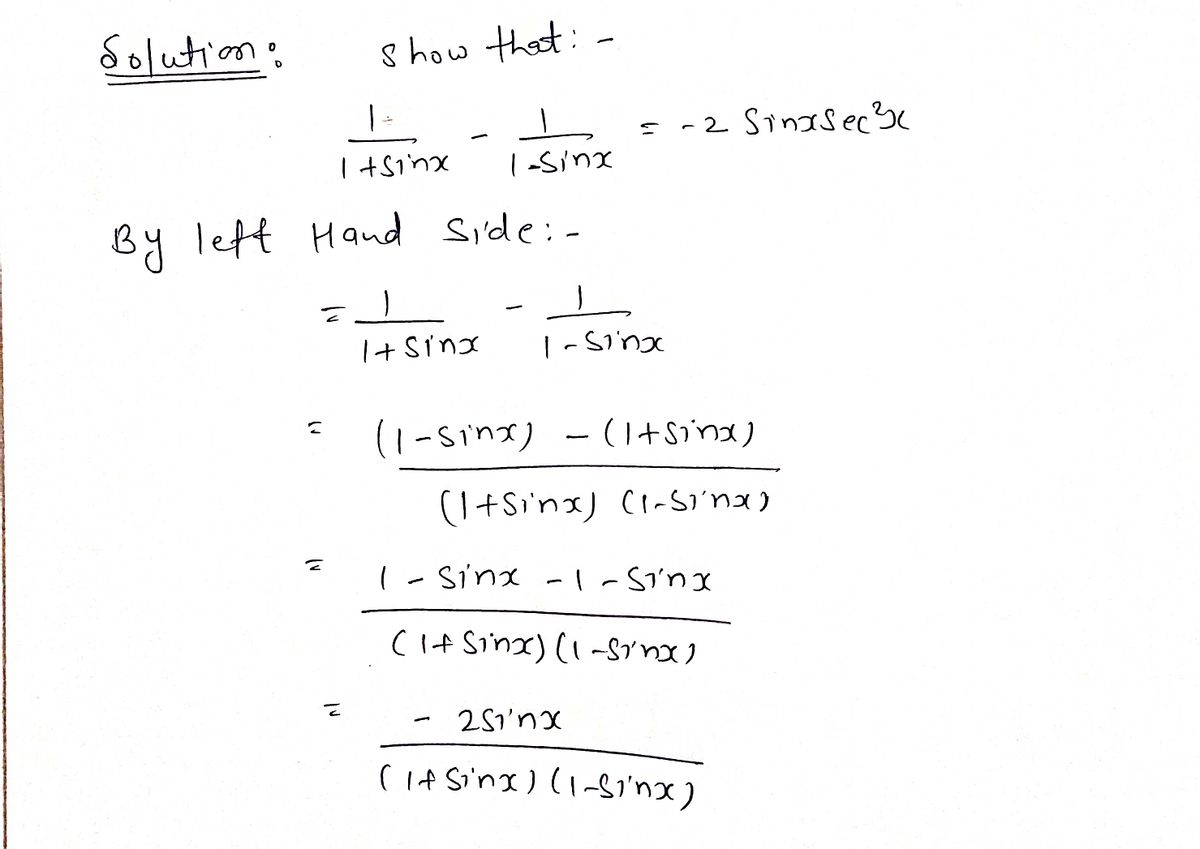 Solution: show that: -
1/(1+sinx) - 1/(1-sinx) = -2 sinx sec²x
By left Hand Side: -
= 1/(1+sinx) - 1/(1-sinx)
= ((1-sinx) - (1+sinx))/((1+sinx) (1-sinx))
= (1 - sinx - 1 - sinx)/((1+sinx)(1-sinx))
= (- 2sinx)/((1+sinx)(1-sinx))